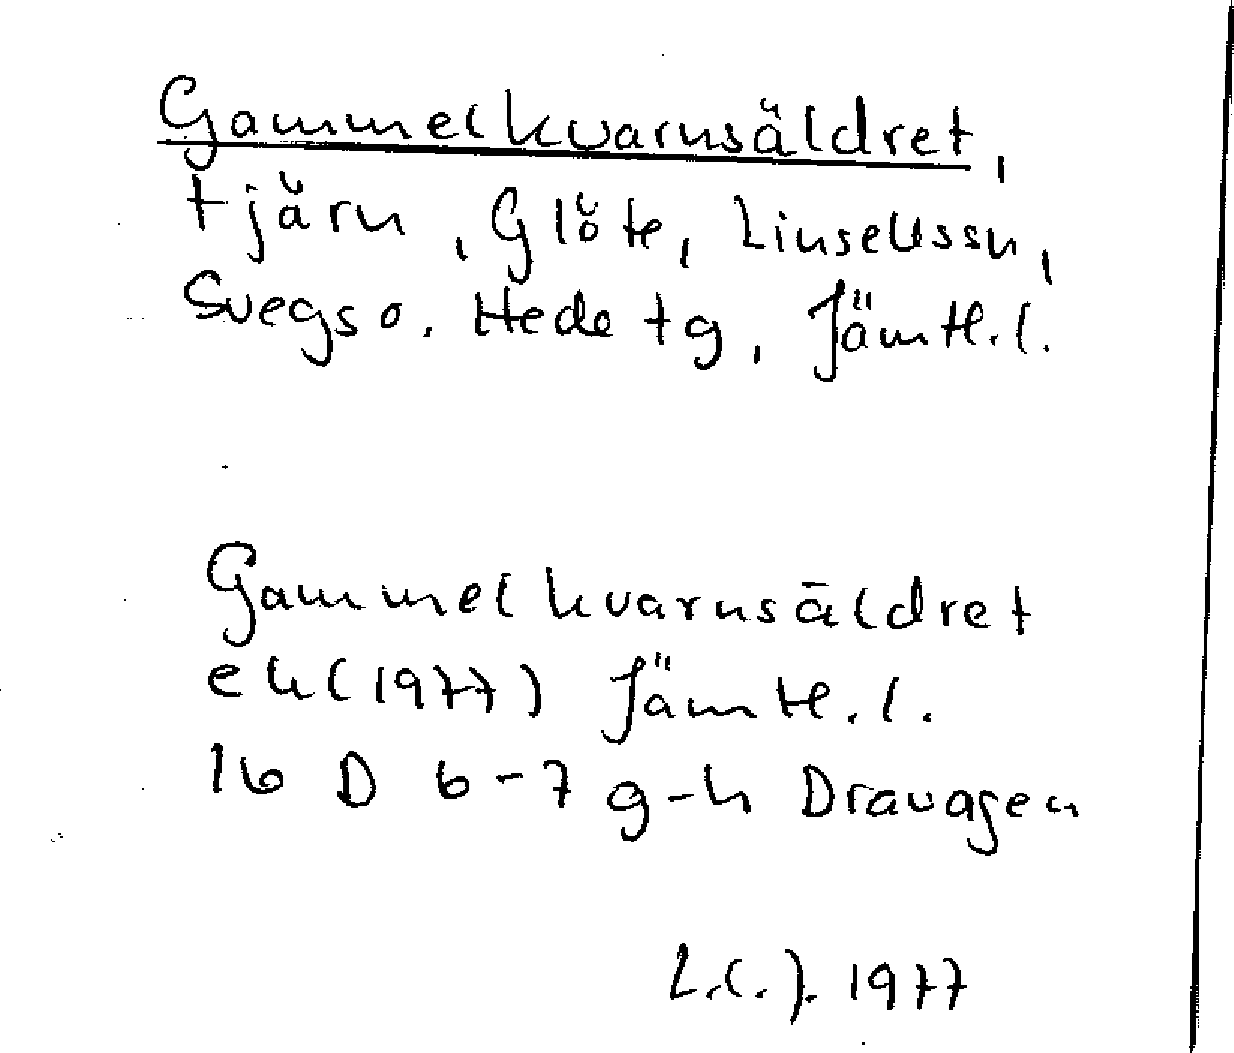 Gammelkvarnsäldret,
tjärn, Glöte, Linsellssn,
Svegs o. Hede tg, Jämtl.l.
Gammelkvarnsäldret
ek (1977) Jämtl.l.
16 D 6-7 g-h Dravagen
L.C.J. 1977